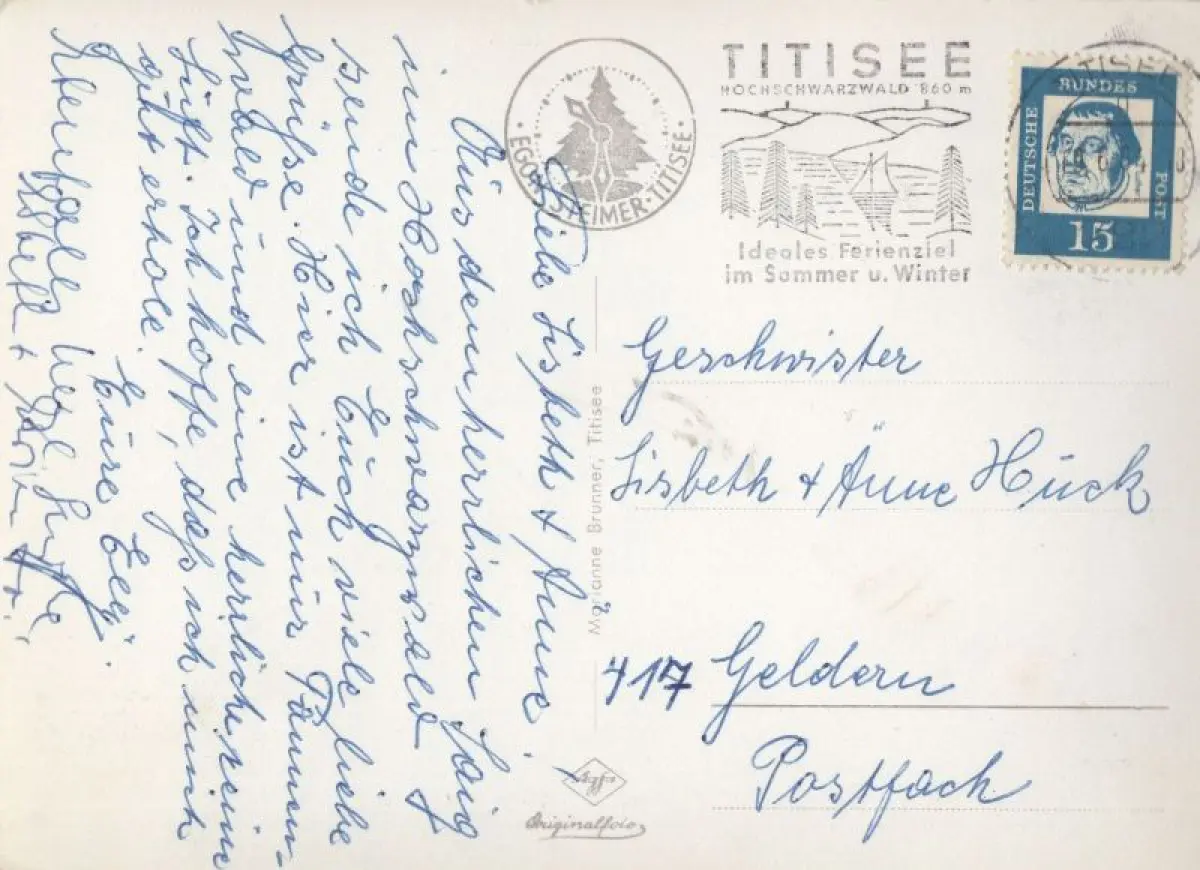 Liebe Lisbeth + Änne!
Aus dem herrlichen Saig
im Hochschwarzwald
sende ich Euch viele liebe
Grüße. Hier ist nur Tannen-
wald und eine herrliche reine
Luft. Ich hoffe, daß ich mich
gut erhole.
Eure Elly.
Ebenfalls herzl. Grüße
TITISEE
HOCHSCHWARZWALD 860 m
Ideales Ferienziel
im Sommer u. Winter
TITISEE
DEUTSCHE
BUNDES
POST
15
Geschwister
Lisbeth + Änne Hück
417 Geldern
Postfach
Marianne Brunner, Titisee
Agfa
Originalfoto